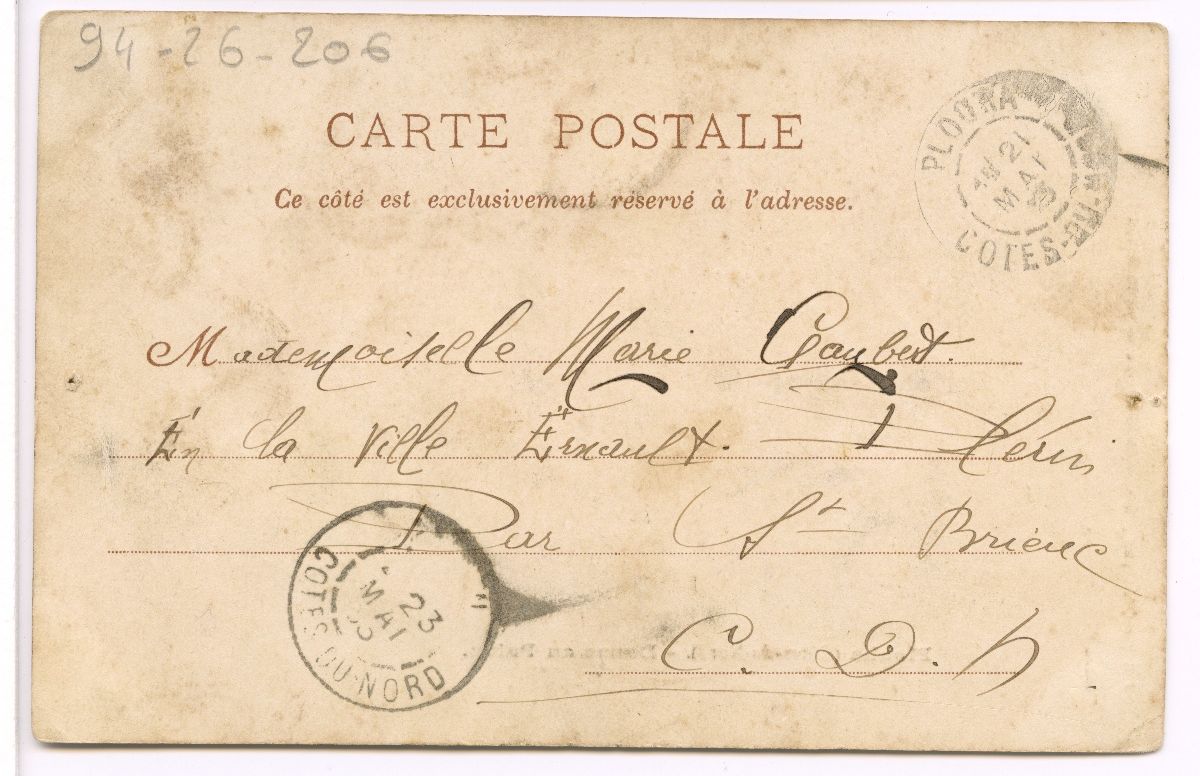 94-26-206
CARTE POSTALE
Ce côté est exclusivement réservé à l'adresse.
PLOUHA
COTES-DU-
21
MAI
Mademoiselle Marie Gaubert.
En la Ville Ernault. Plérin
Par St Brieuc
C. D. N
23
MAI
COTES-DU-NORD